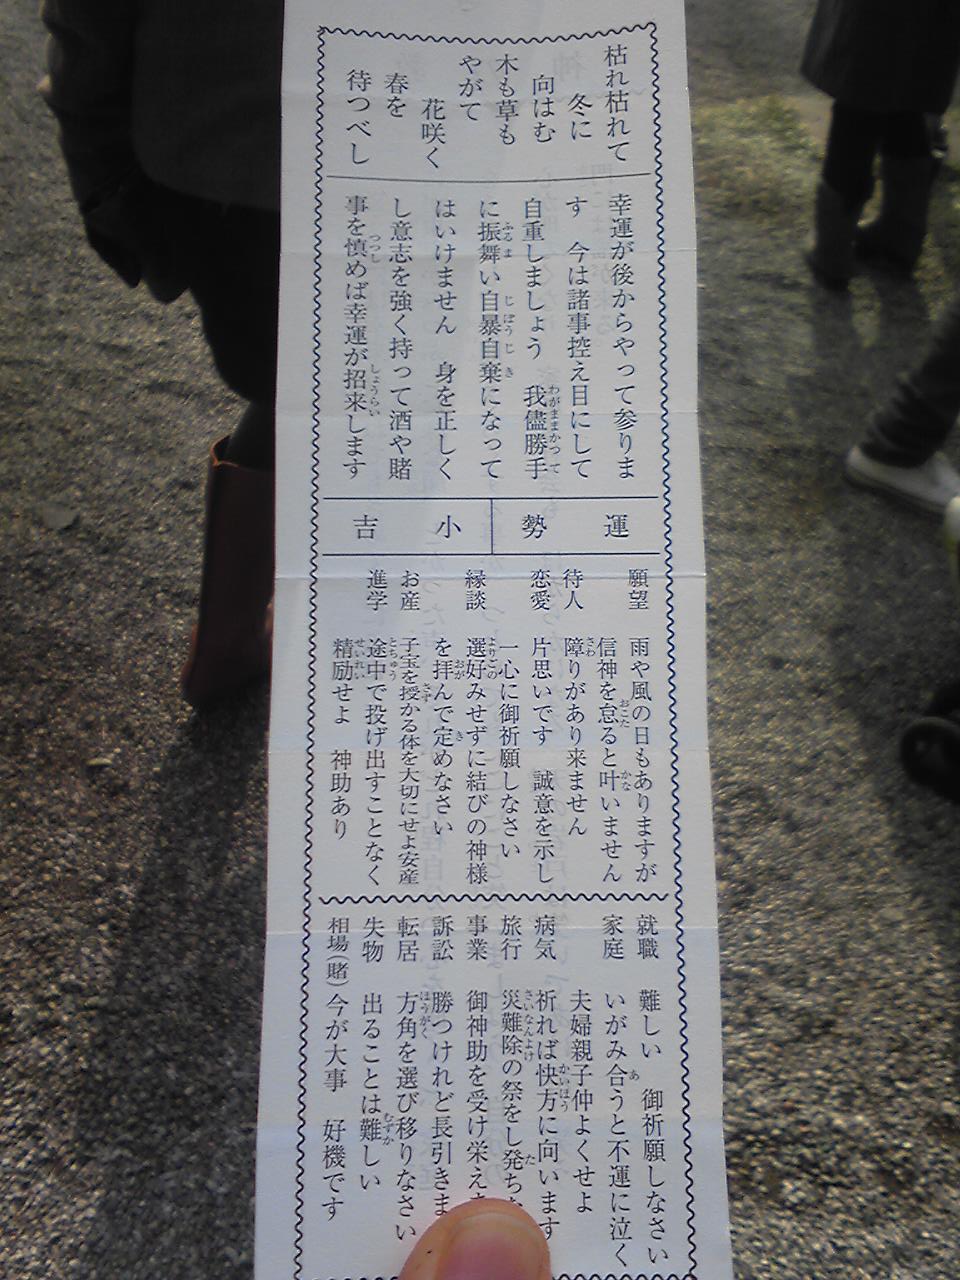 枯れ枯れて
冬に
向はむ
木も草も
やがて
花咲く
春を
待つべし
幸運が後からやって参りま
す　今は諸事控え目にして
自重しましょう　我儘勝手
に振舞い自暴自棄になって
はいけません　身を正しく
し意志を強く持って酒や賭
事を慎めば幸運が招来します
運勢
小吉
願望　雨や風の日もありますが
信神を怠ると叶いません
待人　障りがあり来ません
恋愛　片思いです　誠意を示し
一心に御祈願しなさい
縁談　選好みせずに結びの神様
を拝んで定めなさい
お産　子玉を授かる体を大切にせよ安産
進学　途中で投げ出すことなく
精励せよ　神助あり
就職　難しい　御祈願しなさい
家庭　いがみ合うと不運に泣く
夫婦親子仲よくせよ
病気　祈れば快方に向います
旅行　災難除の祭をし発ち
事業　御神助を受け栄え
訴訟　勝つけれど長引きま
転居　方角を選び移りなさい
失物　出ることは難しい
相場(賭)　今が大事　好機です